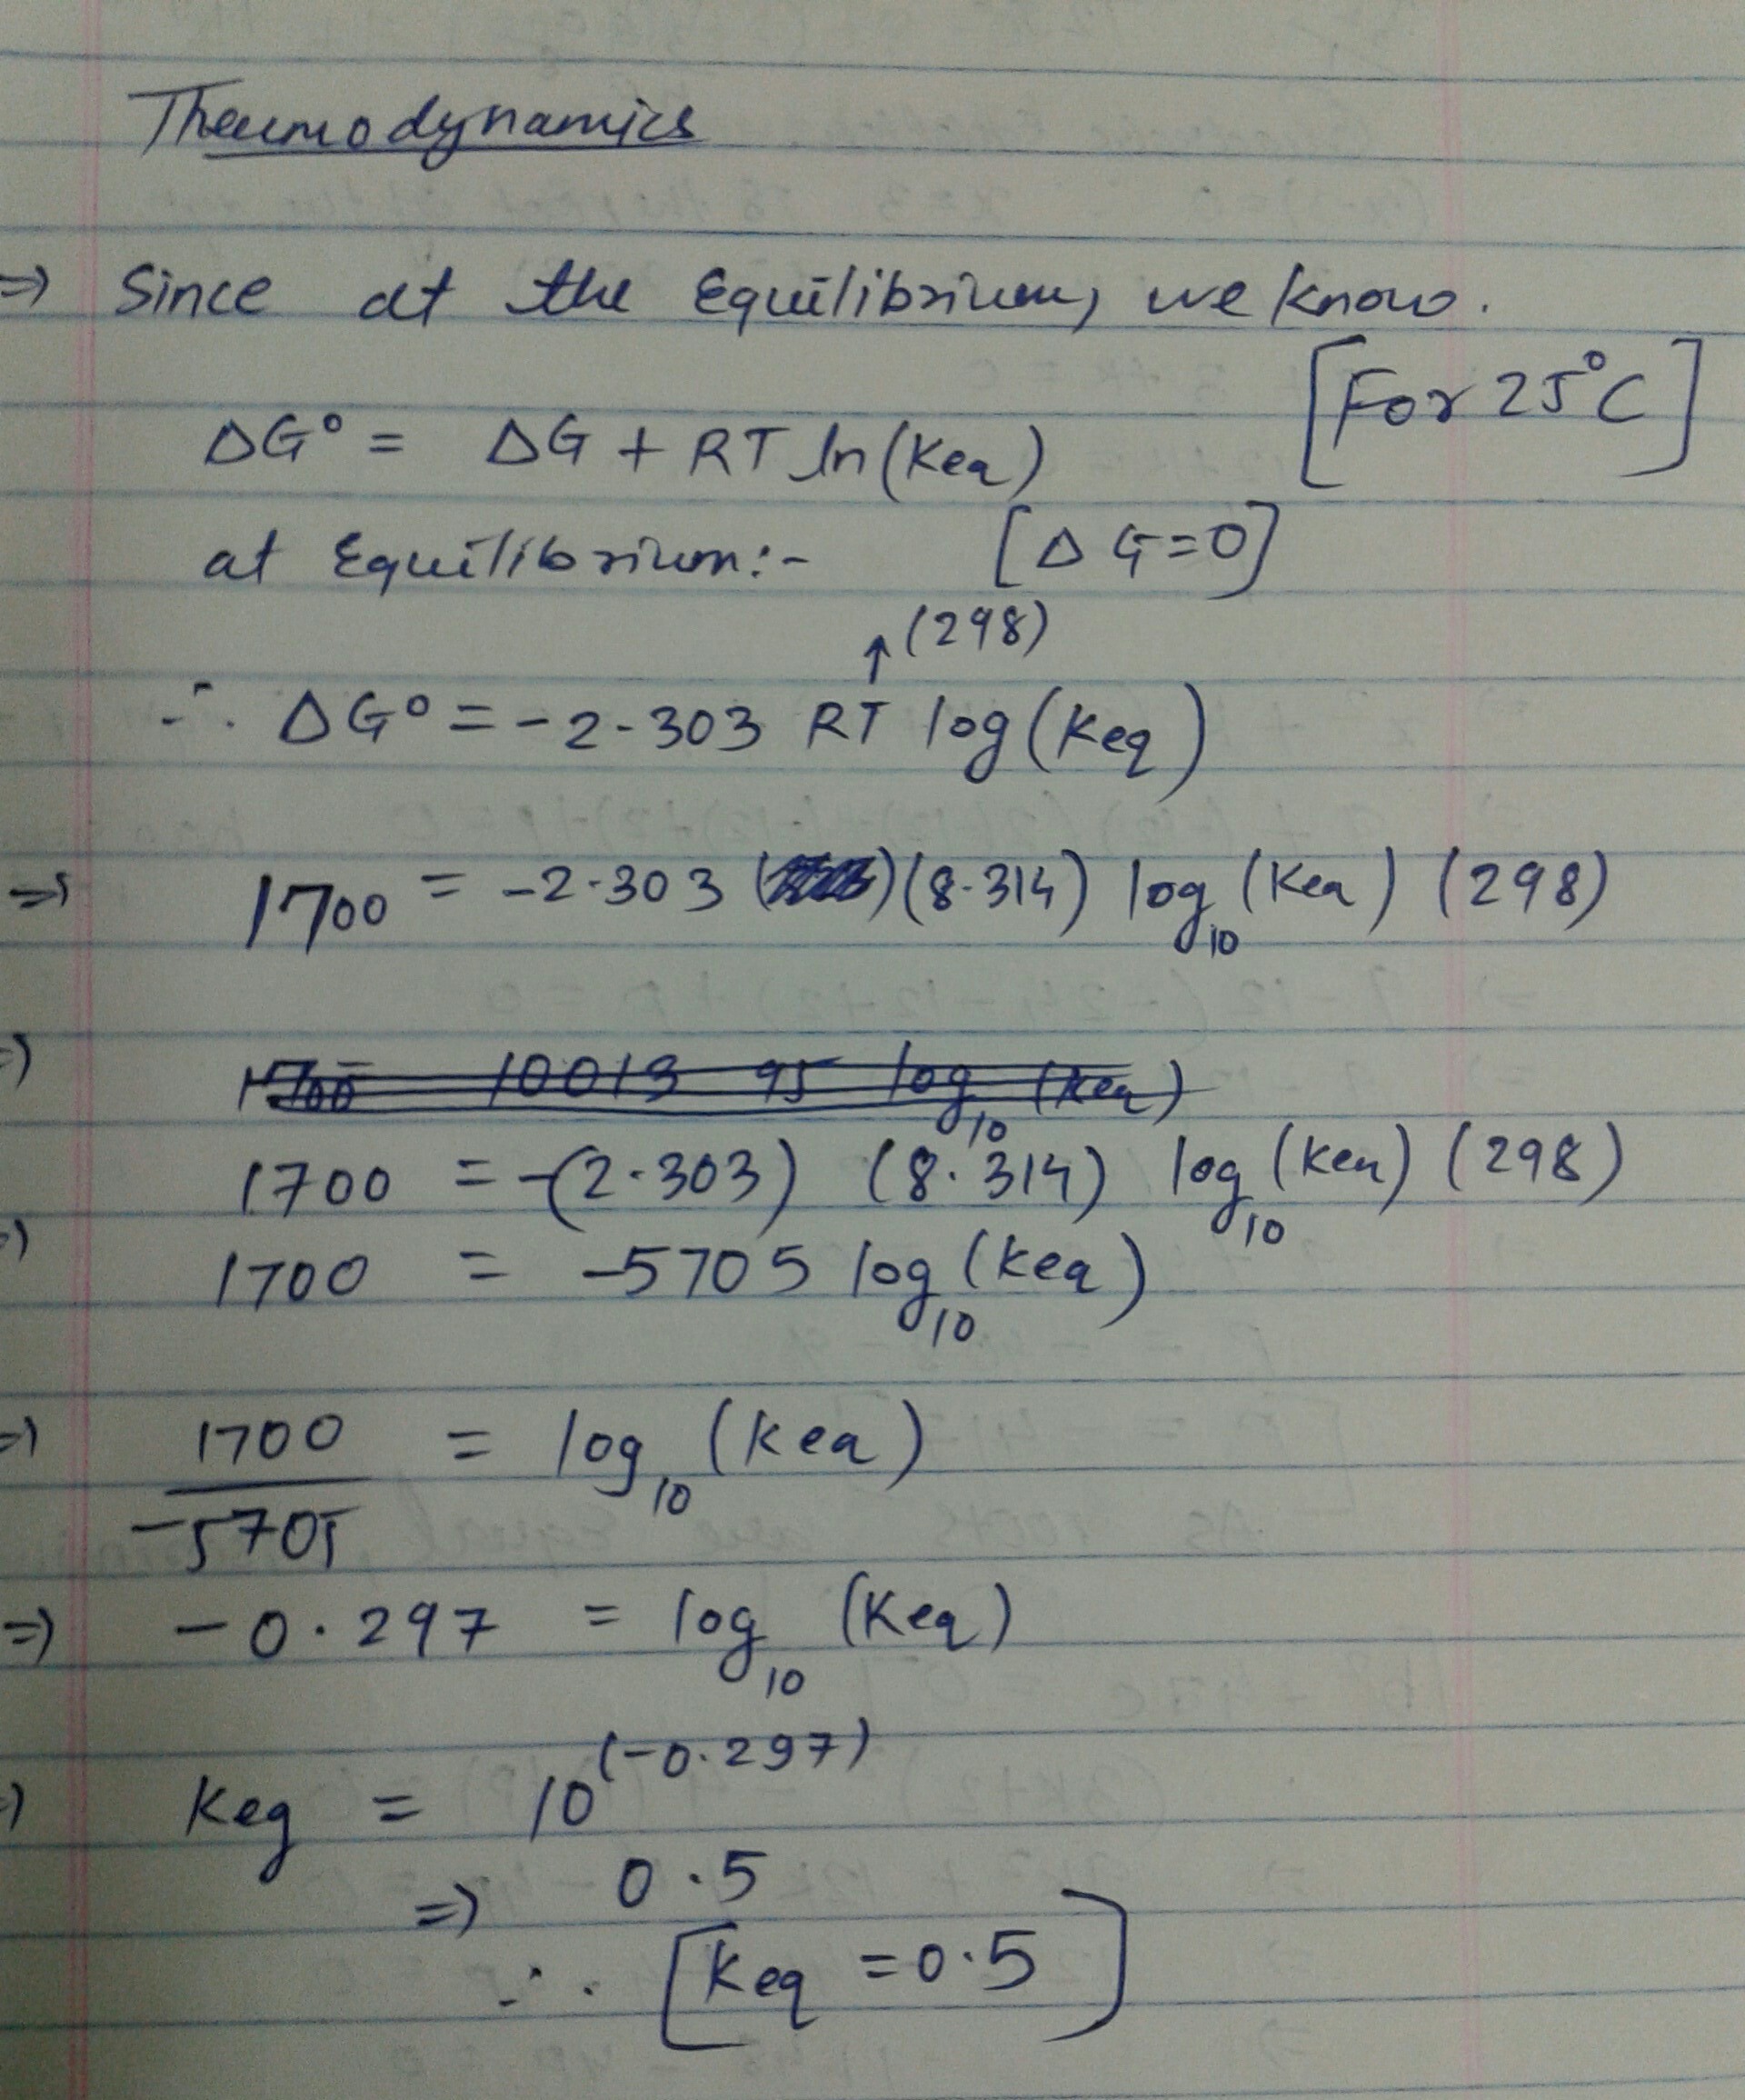 Thermodynamics
=> Since at the Equilibrium, we know.
[For 25°C]
ΔG° = ΔG + RT ln(Keq)
at Equilibrium:- [ΔG=0]
↑(298)
∴ ΔG° = -2.303 RT log(Keq)
=> 1700 = -2.303 (8.314) log₁₀ (Keq) (298)
=> 1700 10013 95 log₁₀ (Keq)
1700 = -(2.303) (8.314) log₁₀ (Keq) (298)
=> 1700 = -5705 log₁₀ (Keq)
=> 1700 = log₁₀ (Keq)
-5705
=> -0.297 = log₁₀ (Keq)
=> Keq = 10^(-0.297)
=> 0.5
∴ [Keq = 0.5]